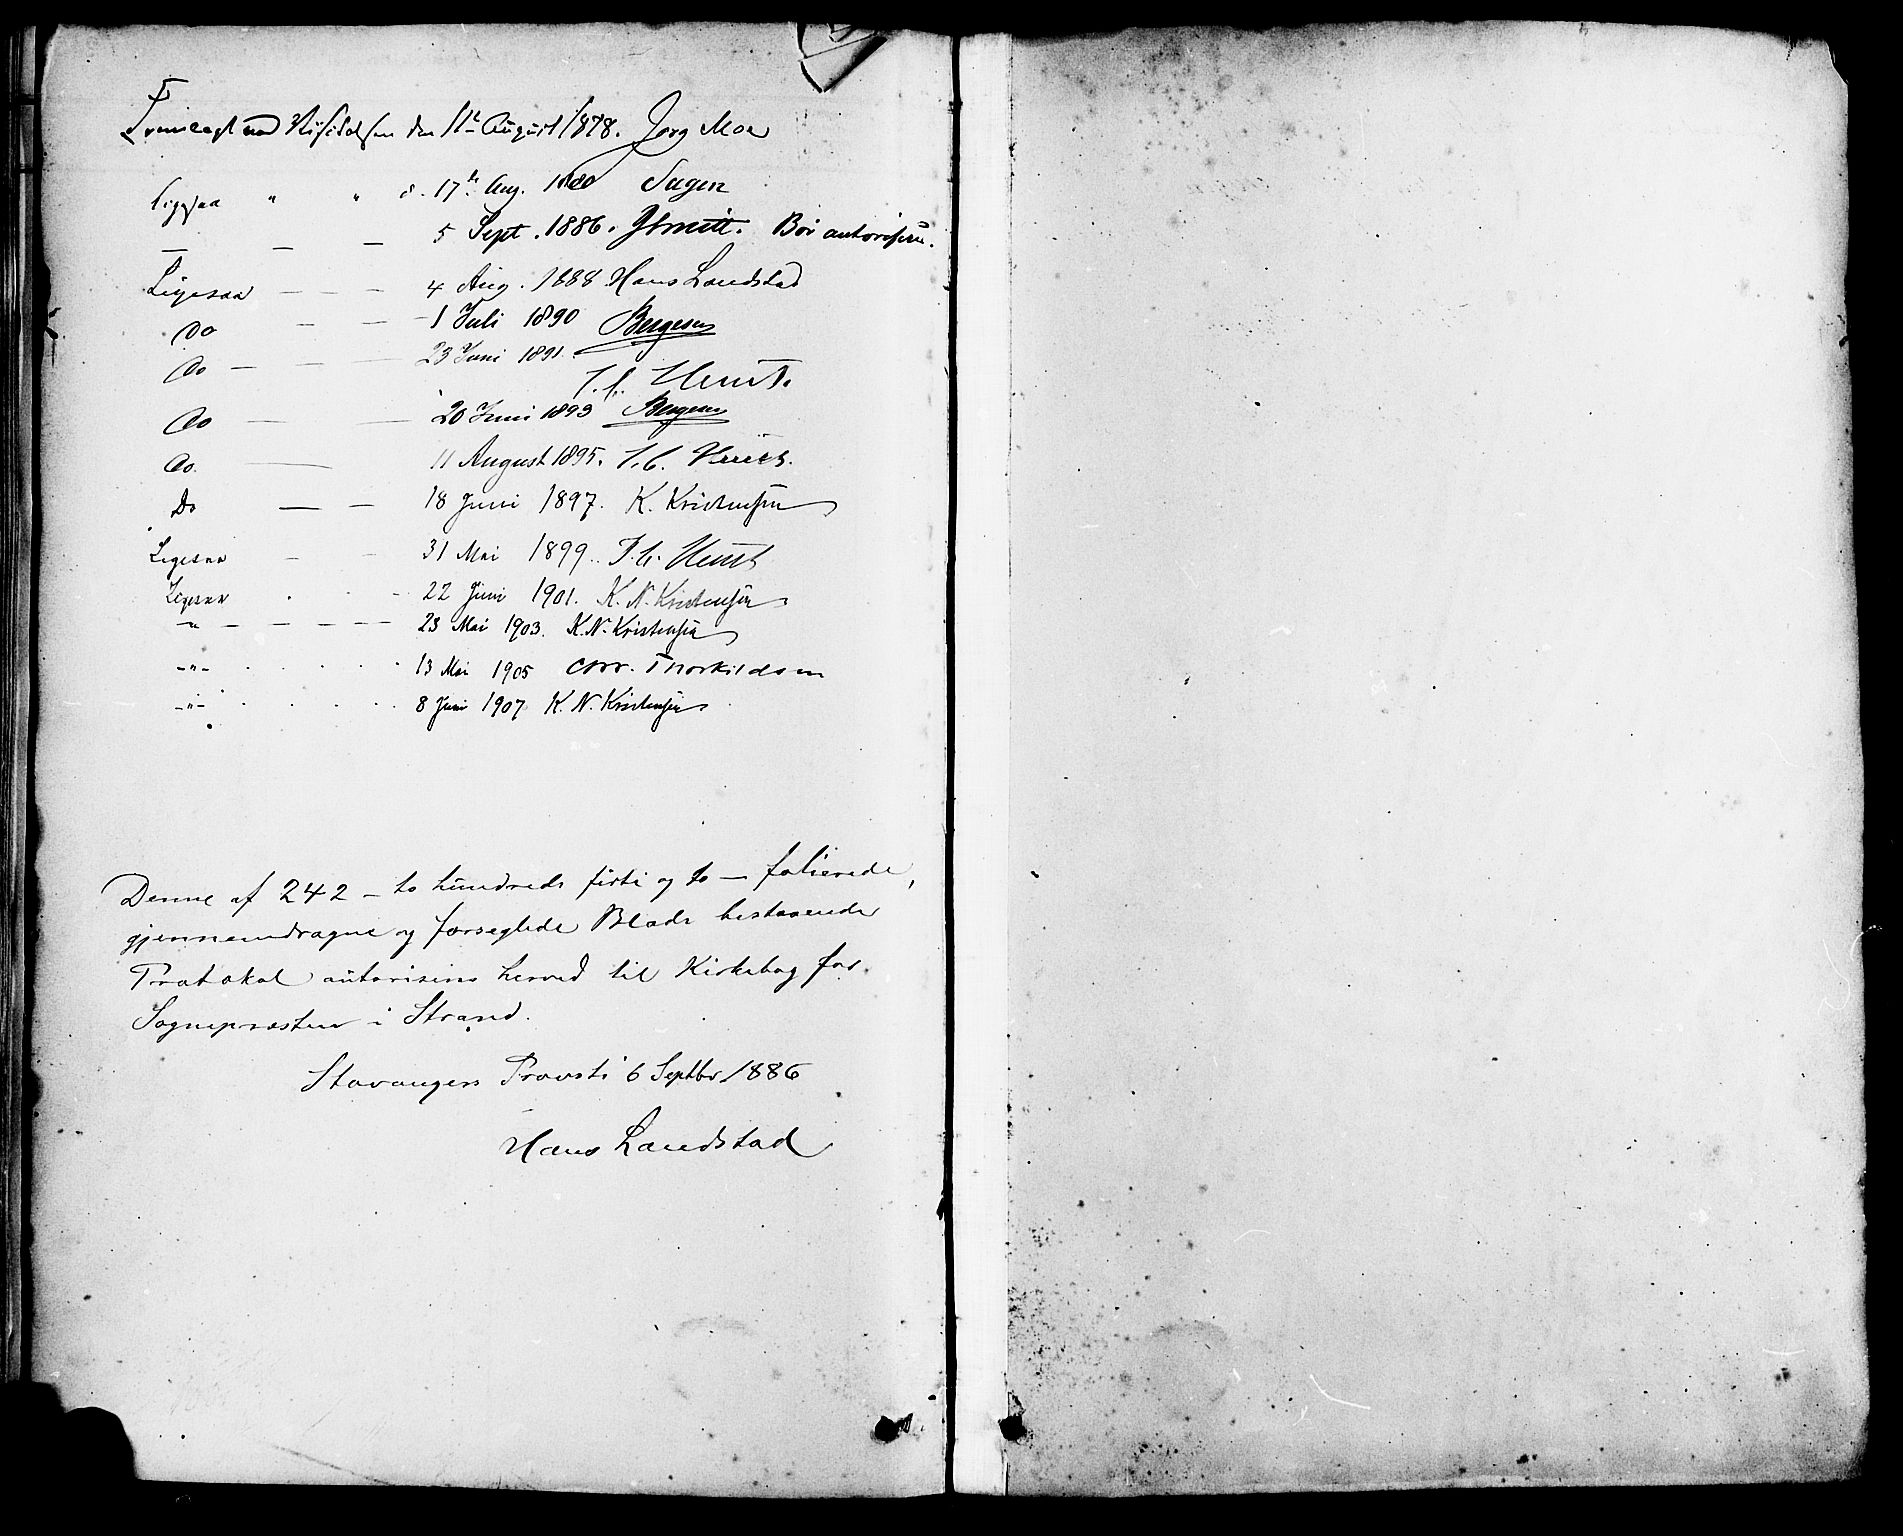 Fremlagt ved Visitatsen den 11te August 1878. Jørg Moe
Ligesaa " " d. 17de Aug. 1880 Sagen
— — — 5 Sept. 1886. Bør autoriseres.
Ligesaa — — — 4 Aug. 1888 Hans Landstad
Do — — — 1 Juli 1890 Bergesen
Do — — — 23 Juni 1891.
Do — — 20 Juni 1893 Bergesen
Do. — 11 August 1895.
Do — — 18 Juni 1897. K. Kristensen
Ligesaa — — 31 Mai 1899.
Ligesaa . . - 22 Juni 1901. K. N. Kristensen
— " — — — — — 23 Mai 1903. K. N. Kristensen
-"- . . . . . 13 Mai 1905 Thorkildsen
-"- . . . . . 8 Juni 1907 K. N. Kristensen
Denne af 242 – to hundrede firti og to – folierede,
gjennemdragne og forseglede Blade bestaaende
Protokol autoriseres herved til Kirkebog for
Sognepræsten i Strand.
Stavangers Provsti 6 Septbr 1886
Hans Landstad